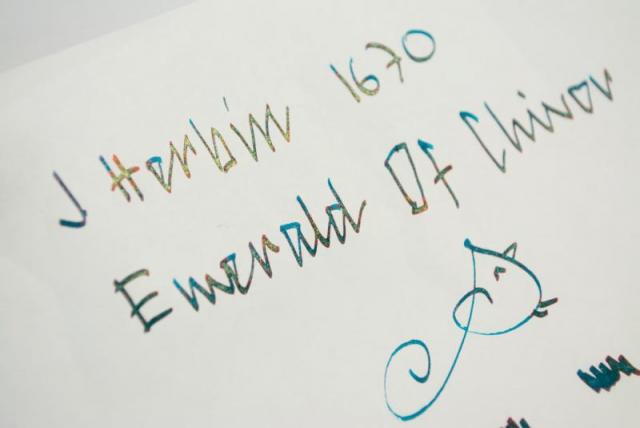 J Herbin 1670
Emerald Of Chivor